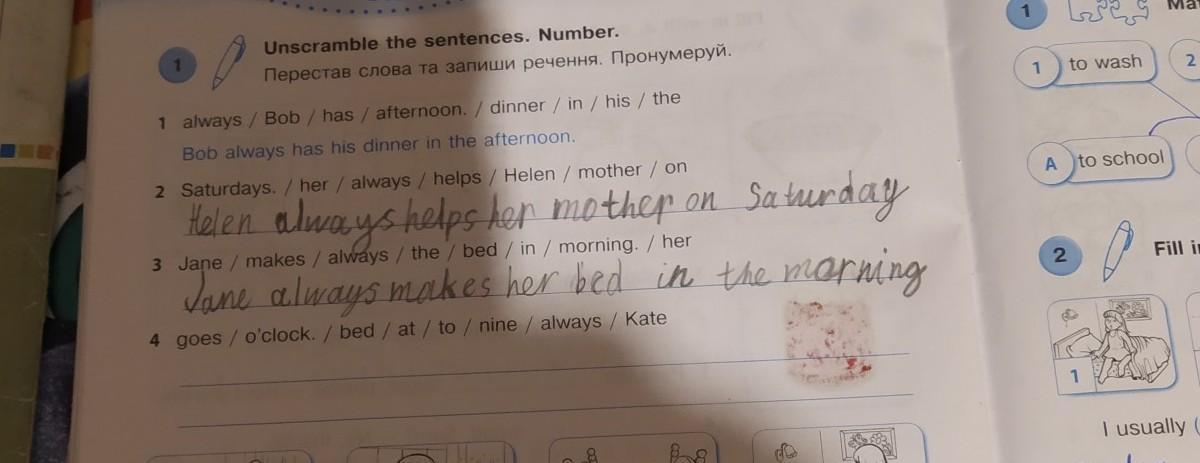 1 Unscramble the sentences. Number.
Перестав слова та запиши речення. Пронумеруй.
1 always / Bob / has / afternoon. / dinner / in / his / the
Bob always has his dinner in the afternoon.
2 Saturdays. / her / always / helps / Helen / mother / on
Helen always helps her mother on Saturday
3 Jane / makes / always / the / bed / in / morning. / her
Jane always makes her bed in the morning
4 goes / o'clock. / bed / at / to / nine / always / Kate
1
1 to wash
2
A to school
2 Fill
1
I usually